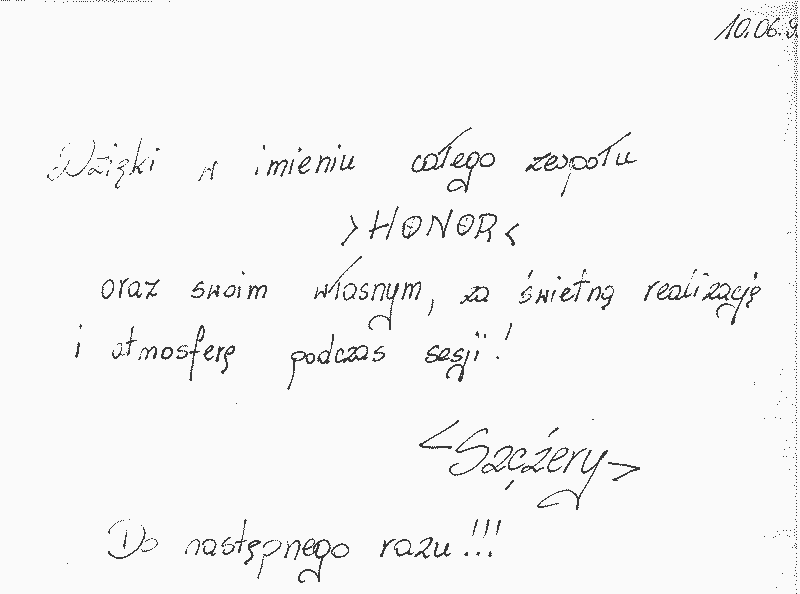 10.06.9
Dzięki w imieniu całego zespołu
>HONOR<
oraz swoim własnym, za świetną realizację
i atmosferę podczas sesji!
<Szczéry>
Do następnego razu!!!